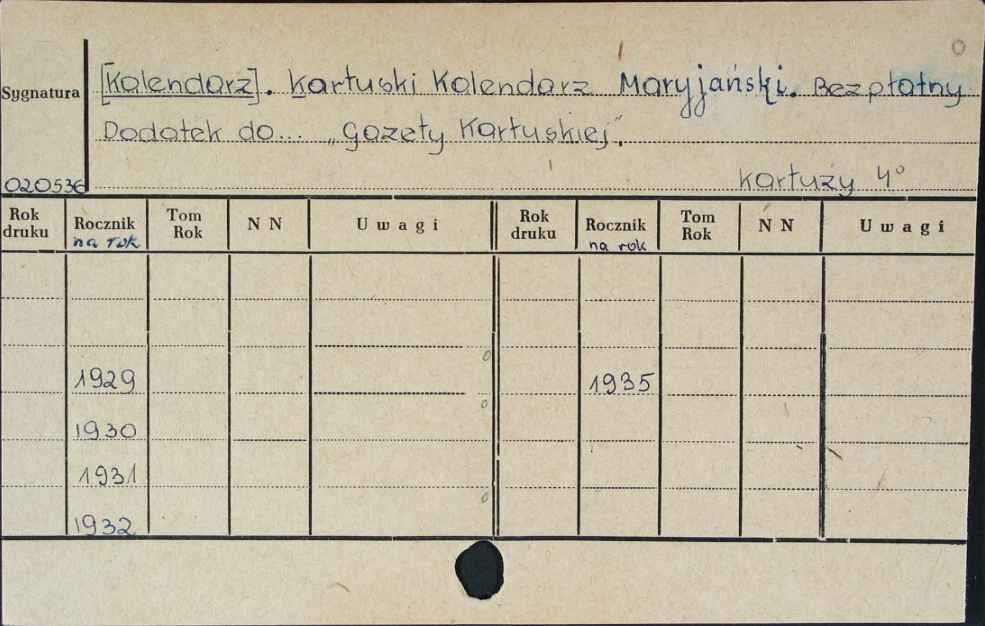 [Kalendarz]. Kartuski Kalendarz Maryjański. Bezpłatny
Sygnatura
Dodatek do... „Gazety Kartuskiej".
020536
Kartuzy 4°
Rok druku Rocznik na rok Tom Rok N N Uwagi Rok druku Rocznik na rok Tom Rok N N Uwagi
1929 1935
1930
1931
1932